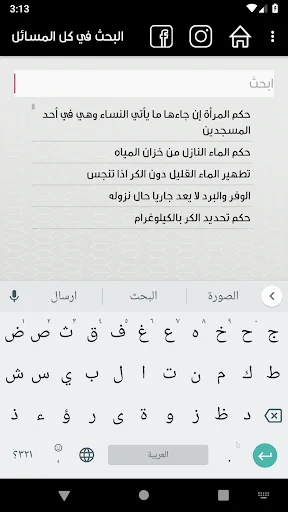 3:13
البحث في كل المسائل
ابحث
حكم المرأة إن جاءها ما يأتي النساء وهي في أحد
المسجدين
حكم الماء النازل من خزان المياه
تطهير الماء القليل دون الكر اذا تنجس
الوفر والبرد لا يعد جاريا حال نزوله
حكم تحديد الكر بالكيلوغرام
الصورة البحث ارسال
ج ح خ ه ع غ ف ق ث ص ض
ط ك م ن ت ا ل ب ي س ش
د ظ ز و ة ى ر ؤ ء ذ
؟٣٢١ ، العربية .